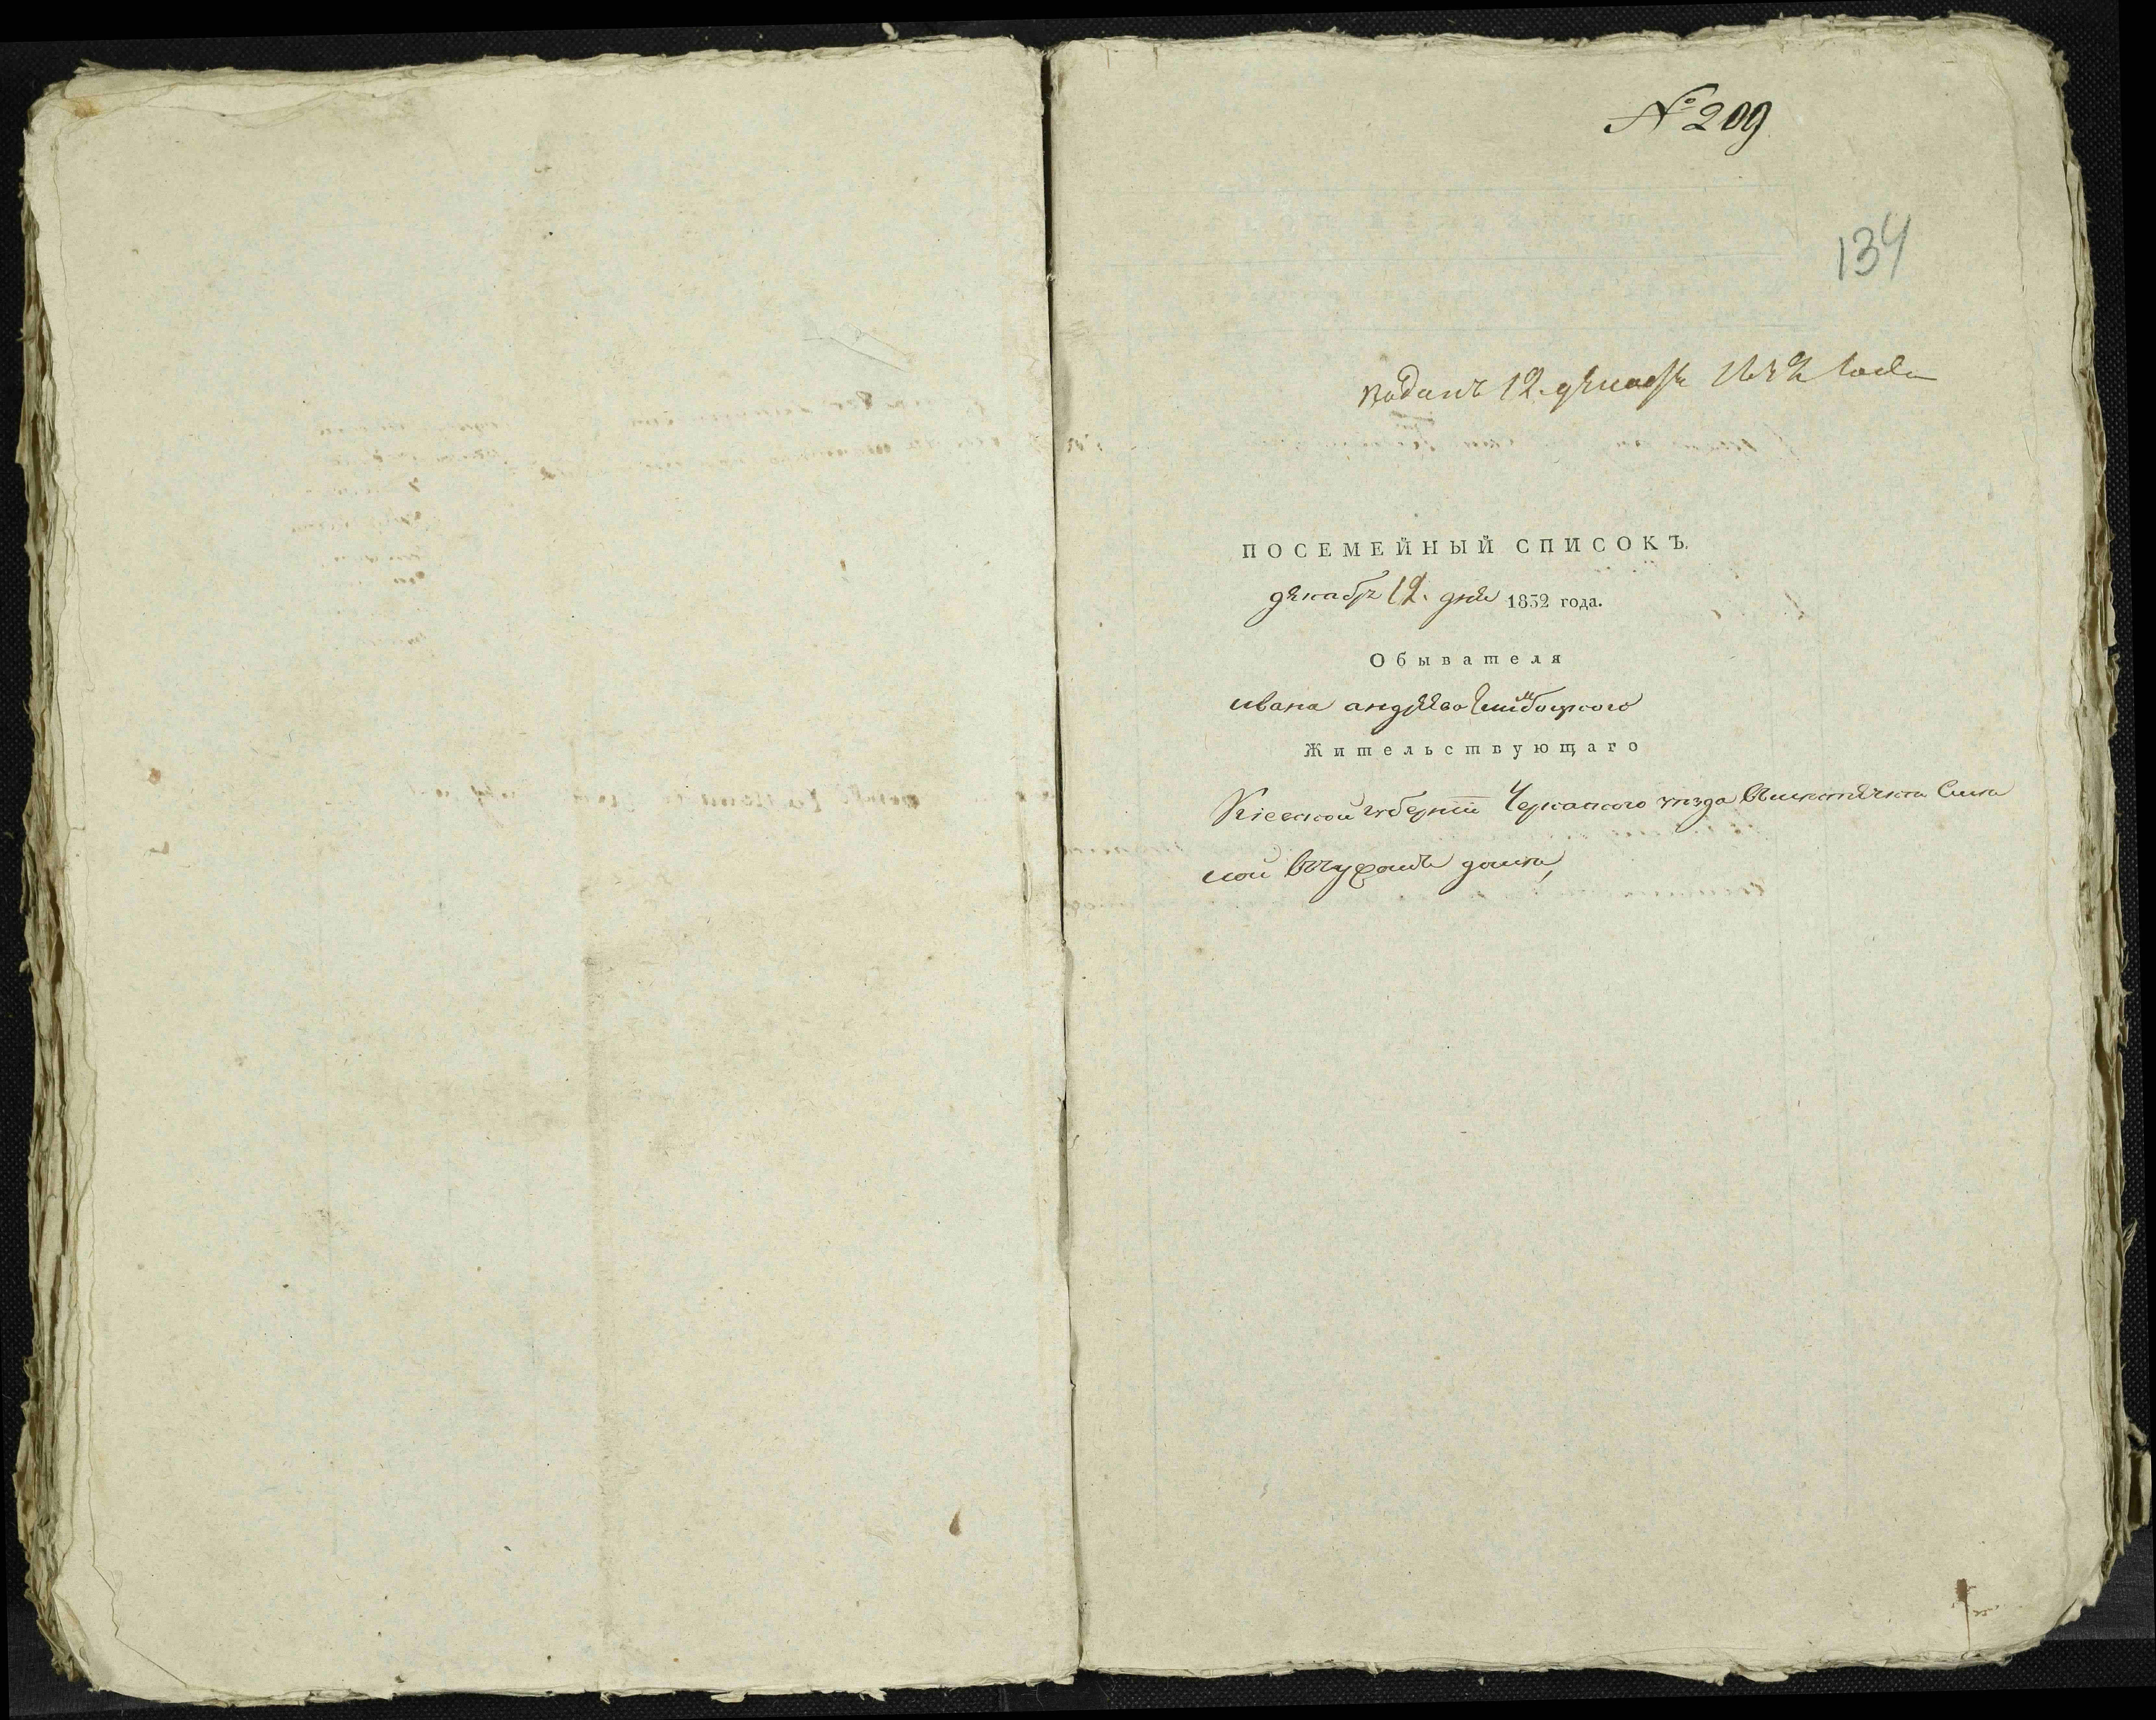 № 209
134
Поданъ 12. декабря 1832 года
ПОСЕМЕЙНЫЙ СПИСОКЪ.
декабря 12. дня 1832 года.
Обывателя
ивана андреева
Жительствующаго
Кіевской губерніи Черкаского уезда вместечке Сме
лой вчужомъ доме,